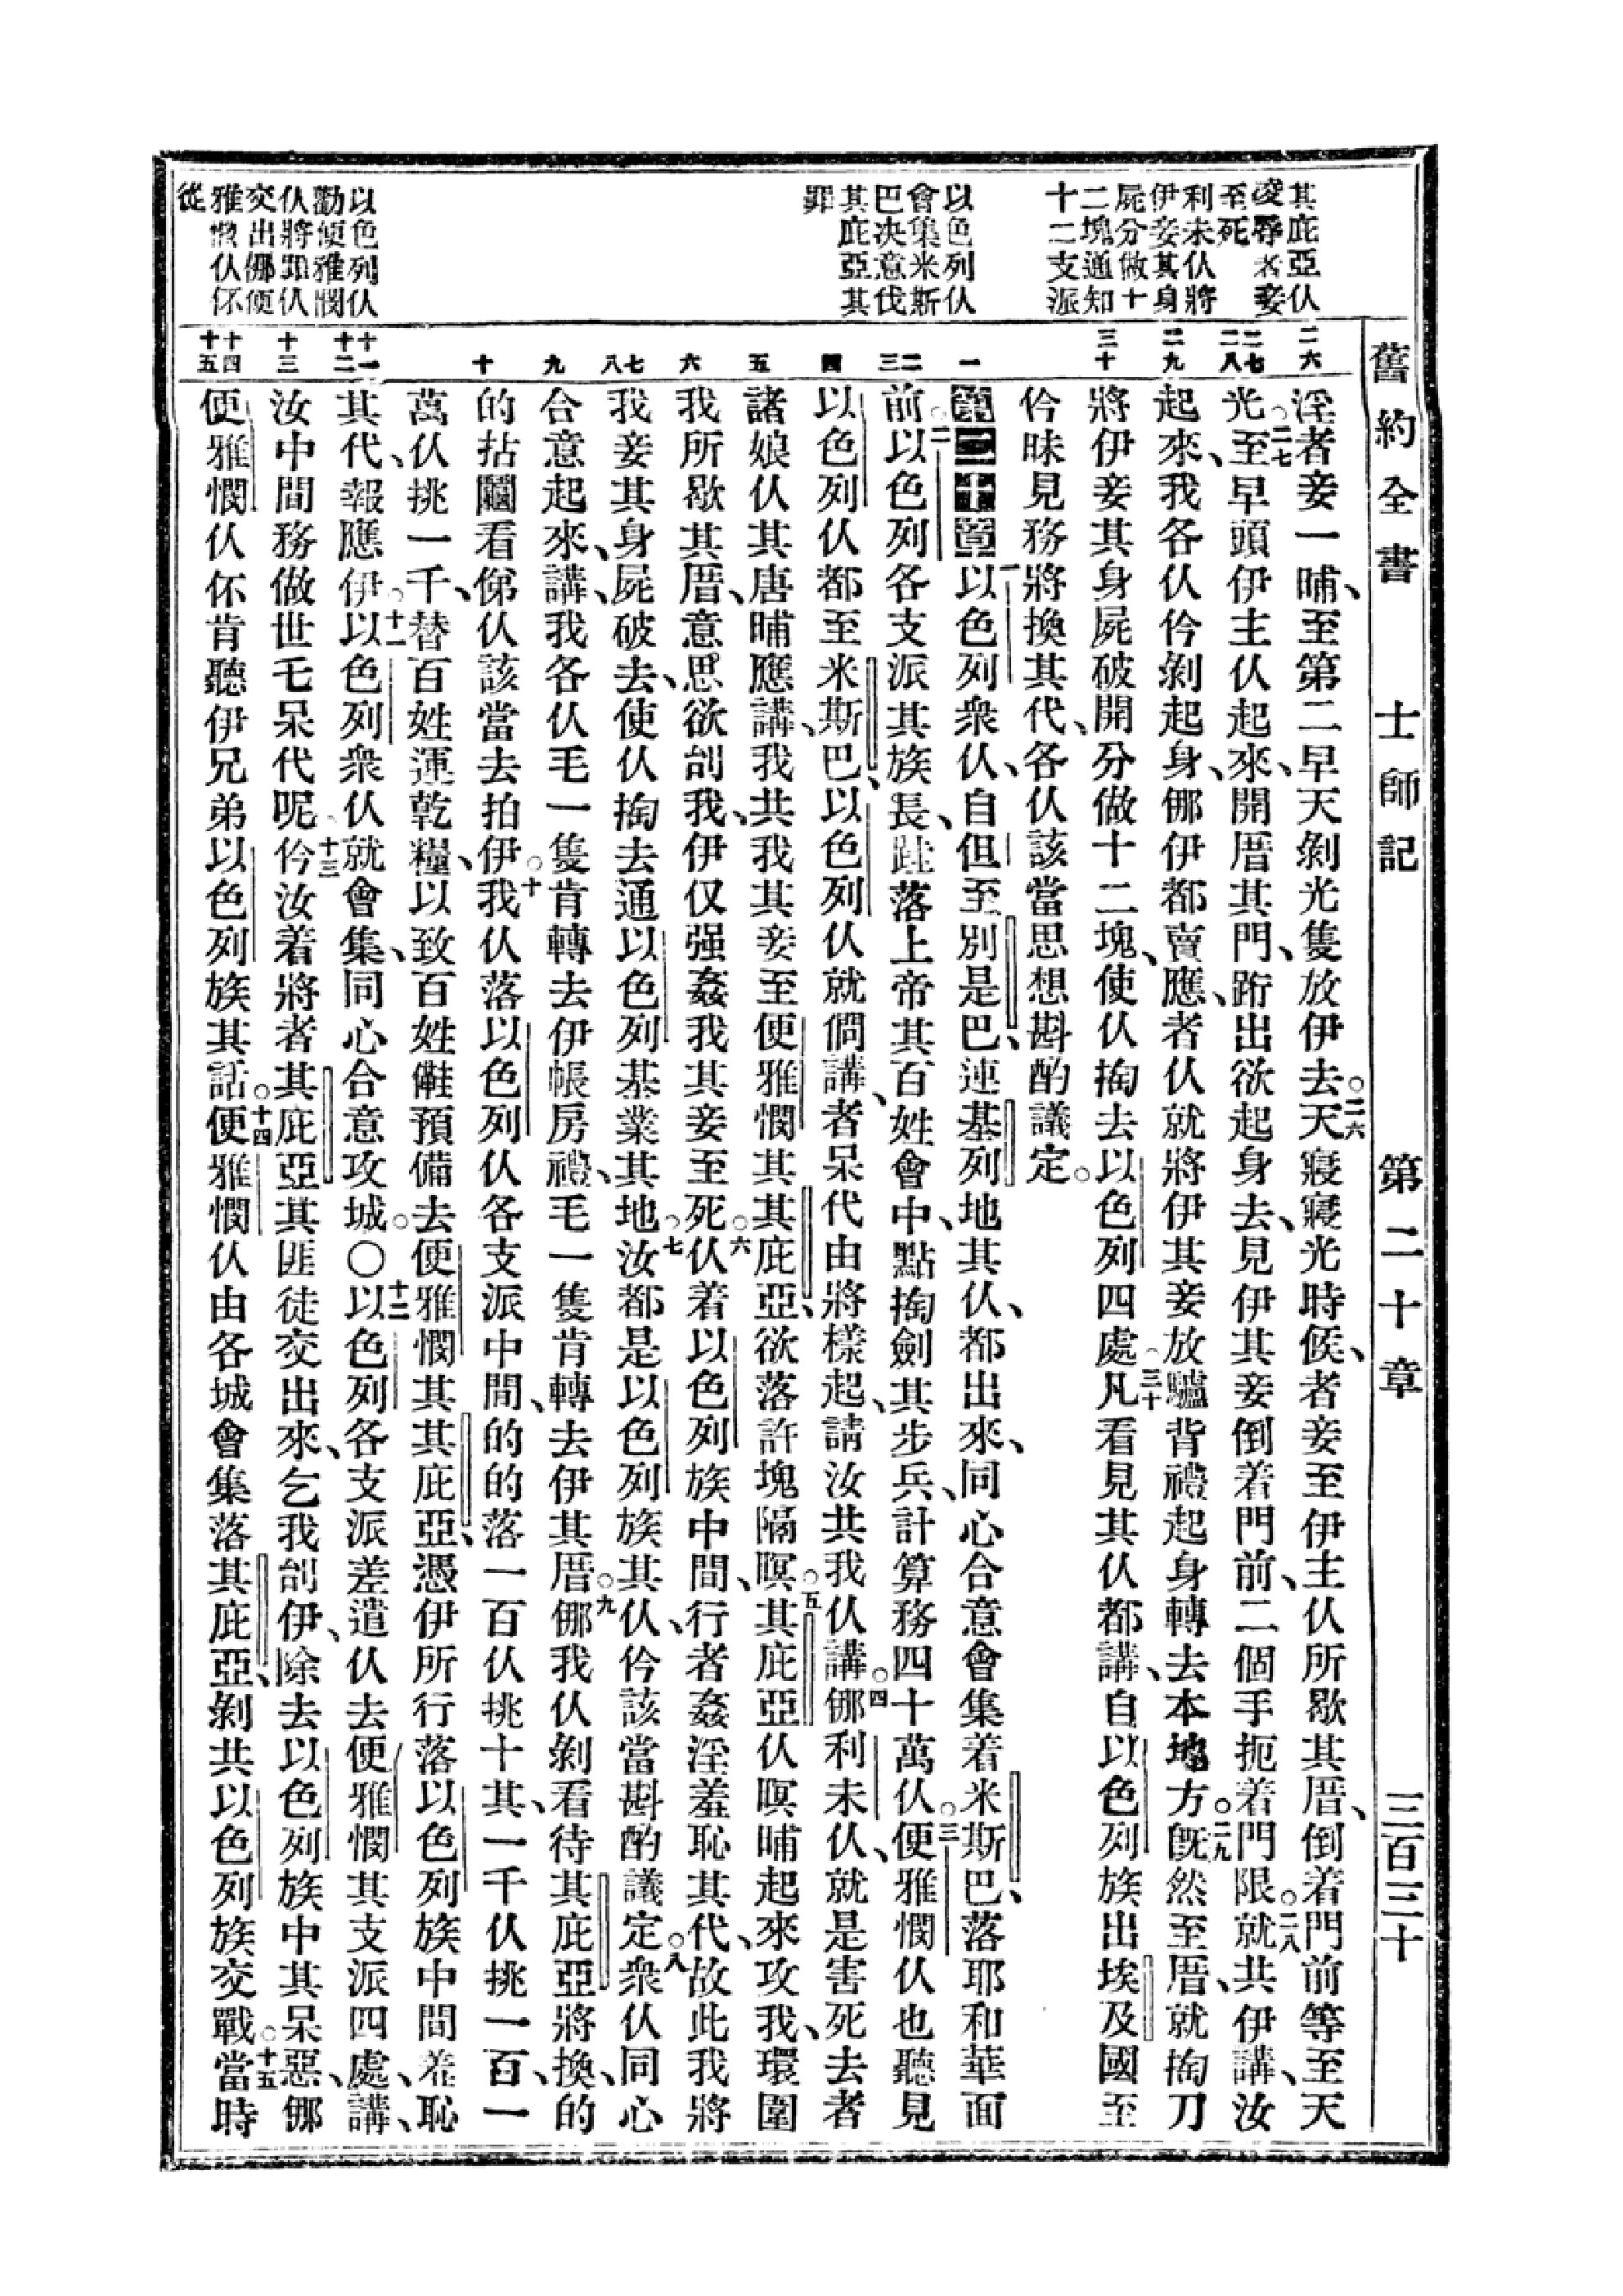 舊約全書 士師記 第二十章 三百三十
其庇亞仈
凌辱者妾
至死
利未仈將
伊妾其身
屍分做十
二塊通知
十二支派
以色列仈
會集米斯
巴决意伐
其庇亞其
罪
以色列仈
勸便雅憫
仈將罪仈
交出㑚便
雅憫仈伓
從
二六
二七
二八
二九
三十
一
二
三
四
五
六
七
八
九
十
十一
十二
十三
十四
十五
淫者妾一晡、至第二早天剝光隻放伊去。二六天寢寢光時候、者妾至伊主仈所歇其厝、倒着門前等至天
光。二七至早頭伊主仈起來、開厝其門、跨出欲起身去、見伊其妾倒着門前、二個手扼着門限。二八就共伊講、汝
起來、我各仈仱剝起身、㑚伊都賣應、者仈就將伊其妾放驢背禮起身轉去本地方。二九旣然至厝、就掏刀
將伊妾其身屍破開分做十二塊、使仈掏去以色列四處。三十凡看見其仈都講、自以色列族出埃及國至
仱昧見務將換其代、各仈該當思想斟酌議定。
第二十章一以色列衆仈、自但至別是巴、連基列地其仈、都出來、同心合意會集着米斯巴、落耶和華面
前。二以色列各支派其族長、跕落上帝其百姓會中、點掏劍其步兵、計算務四十萬仈。三便雅憫仈也聽見
以色列仈都至米斯巴、以色列仈就僩講、者呆代由將樣起、請汝共我仈講。四㑚利未仈、就是害死去者
諸娘仈其唐晡應講、我共我其妾至便雅憫其其庇亞、欲落許塊隔暝。五其庇亞仈暝晡起來攻我、環圍
我所歇其厝、意思欲刣我、伊仅强姦我其妾至死。六仈着以色列族中間、行者姦淫羞恥其代、故此我將
我妾其身屍破去、使仈掏去通以色列基業其地。七汝都是以色列族其仈、仱該當斟酌議定。八衆仈同心
合意起來、講、我各仈毛一隻肯轉去伊帳房禮、毛一隻肯轉去伊其厝。九㑚我仈剝看待其庇亞將換、的
的拈鬮看俤仈該當去拍伊。十我仈落以色列仈各支派中間、的的落一百仈挑十其、一千仈挑一百、一
萬仈挑一千、替百姓運乾糧、以致百姓儺預備去便雅憫其其庇亞、憑伊所行落以色列族中間羞恥
其代、報應伊。十一以色列衆仈就會集、同心合意攻城。〇十二以色列各支派差遣仈去便雅憫其支派四處、講、
汝中間務做世乇呆代呢。十三仱汝着將者其庇亞其匪徒交出來、乞我刣伊、除去以色列族中其呆惡、㑚
便雅憫仈伓肯聽伊兄弟以色列族其話。十四便雅憫仈由各城會集落其庇亞、剝共以色列族交戰。十五當時